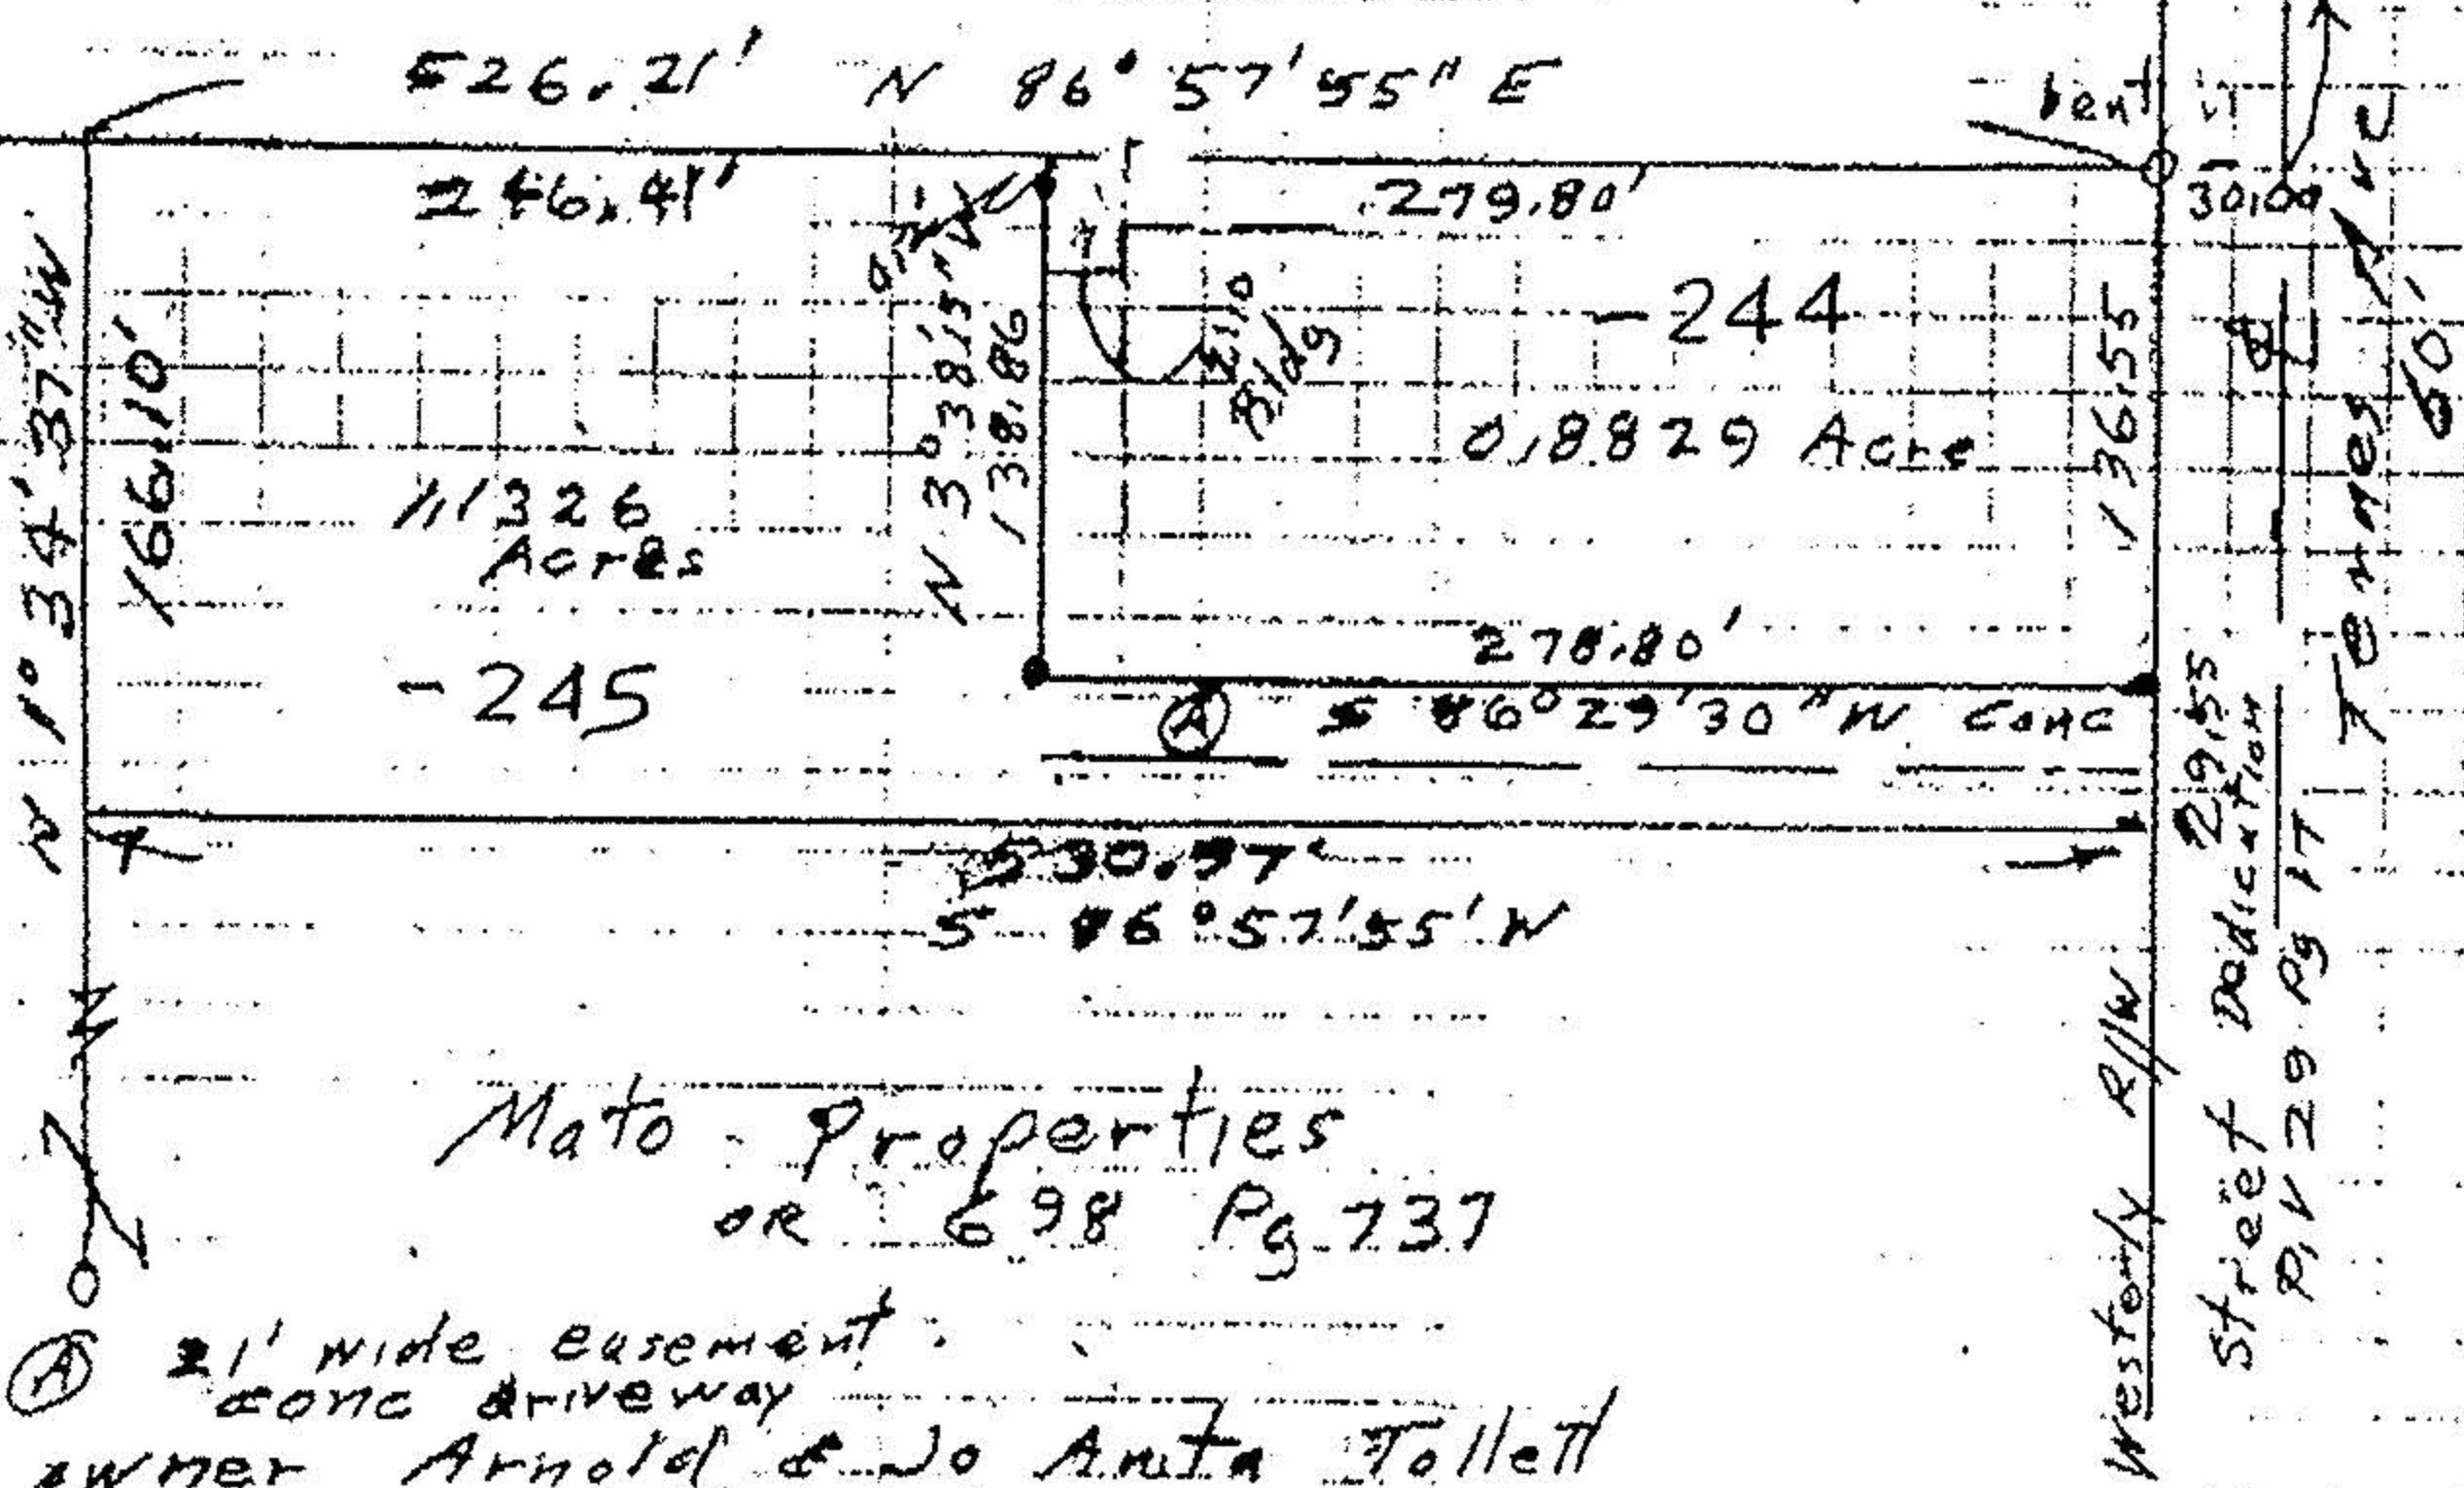 526.21' N 86° 57' 55" E
bent
246.41'
279.80'
30.00
N 1° 34' 37" W
166.10'
N 3° 38' 15" W
138.86
Bldg
-244
0.8829 Acre
136.55
1.1326
Acres
-245
278.80'
Ⓐ S 86° 29' 30" W conc
29.55
530.97'
S 86° 57' 55' W
60'
Westerly R/W
Street Dedication
P.V 29 Pg 17
Mato Properties
OR 698 Pg 737
Ⓐ 21' wide easement
conc driveway
owner Arnold & Jo Anita Tollett